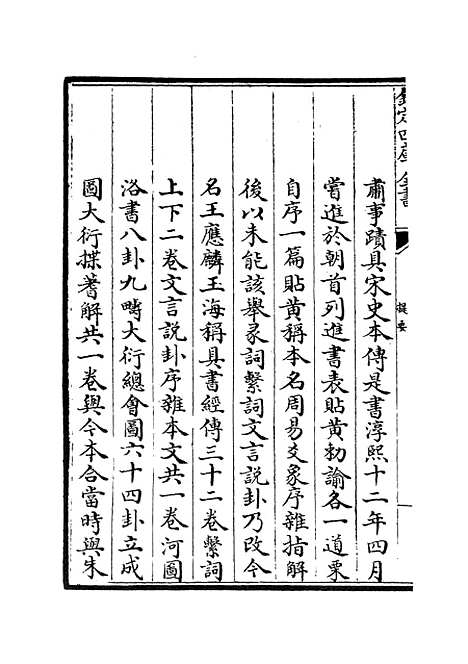 欽定四庫全書
提要
肅事蹟具宋史本傳是書淳熙十二年四月
嘗進於朝首列進書表貼黄勅諭各一道栗
自序一篇貼黄稱本名周易爻象序雜指解
後以未能該舉彖詞繫詞文言說卦乃改今
名王應麟玉海稱其書經傳三十二卷繫詞
上下二卷文言説卦序雜本文共一卷河圖
洛書八卦九疇大衍總會圖六十四卦立成
圖大衍揲蓍解共一卷與今本合當時與朱